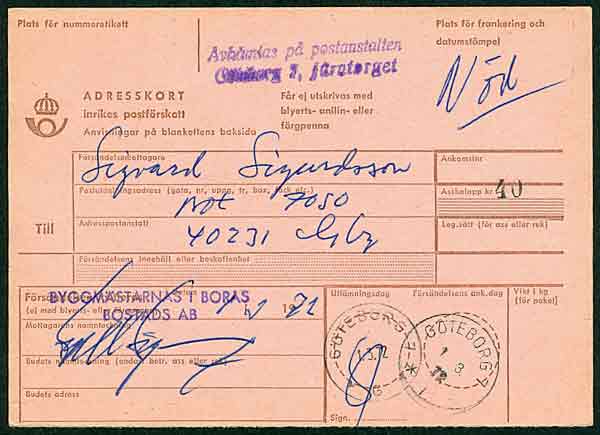 Plats för nummeretikett
Avhämtas på postanstalten
Göteborg 7, Järntorget
Plats för frankering och
datumstämpel
Nöd
ADRESSKORT
inrikes postförskott
Anvisningar på blankettens baksida
Får ej utskrivas med
blyerts- anilin- eller
färgpenna
Försändelsemottagare
Sigvard Sigurdsson
Ankomstnr
Postutdelningsadress (gata, nr, uppg, tr, box, fack etc.)
7050
Avihelopp kr
40
Till
Adresspostanstalt
40231 Gbg
Leg.sätt (för ass eller rek)
Försändelsens innehåll eller beskaffenhet
BYGGMÄSTARNAS I BORÅS
BOSTADS AB
(ej med blyerts- eller
Mottagarens namnteckning
Budets namnteckning (endast betr. ass eller rek)
Budets adress
Utlämningsdag
Försändelsens ank.dag
Vikt i kg
(för paket)
GÖTEBORG 7
1.3.72
GÖTEBORG 7
1 3
72
Sign.